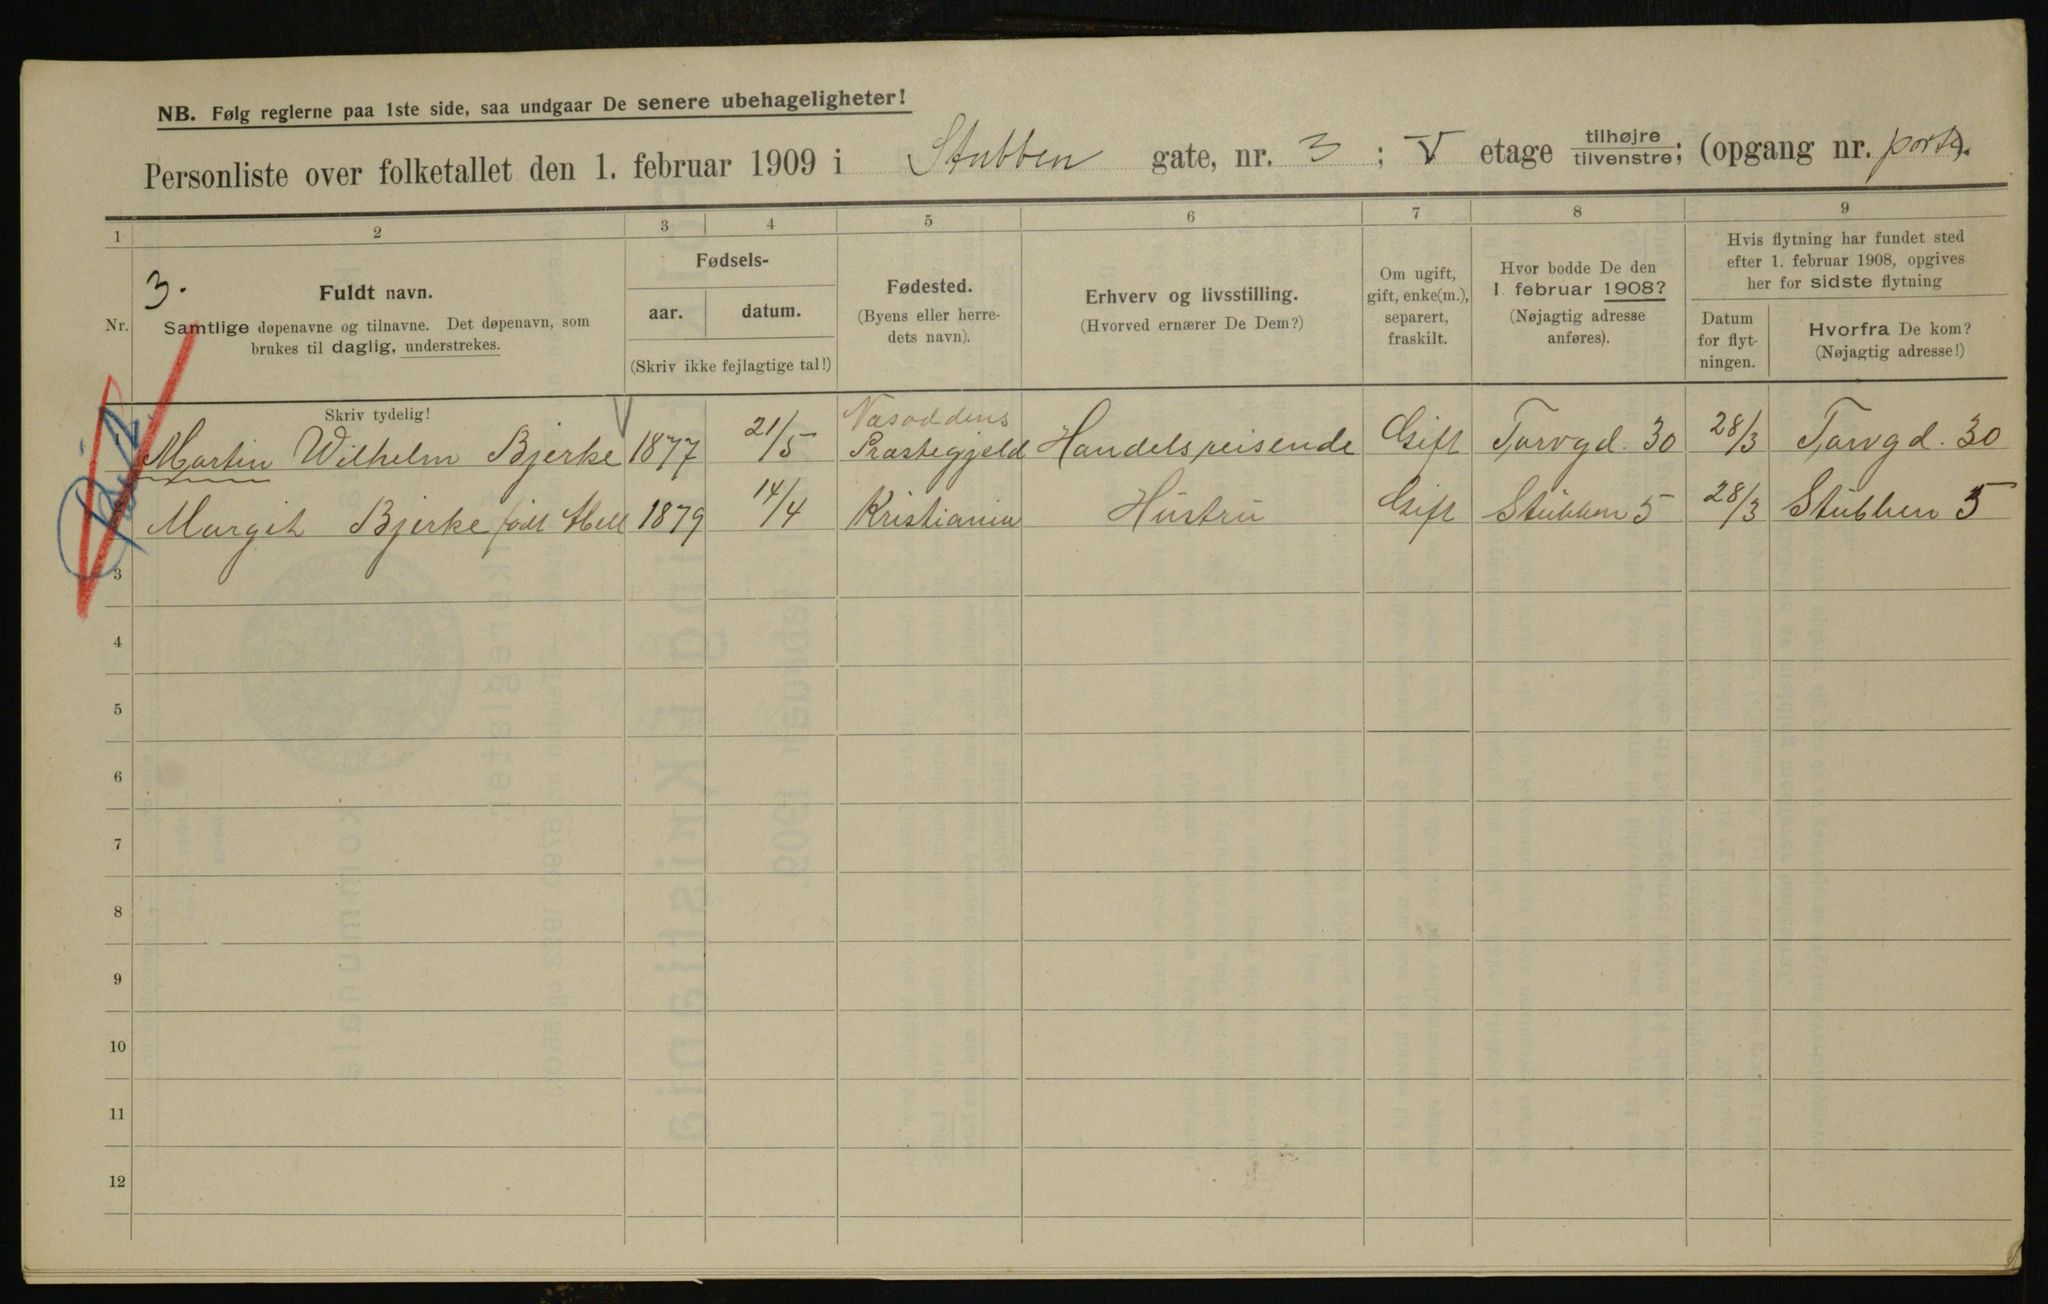 NB. Følg reglerne paa 1ste side, saa undgaar De senere ubehageligheter!
Personliste over folketallet den 1. februar 1909 i Stubben gate, nr. 3 ; V etage tilhøjre/tilvenstre; (opgang nr. port).
1 2 3 4 5 6 7 8 9
3.
Nr.
Fuldt navn.
Samtlige døpenavne og tilnavne. Det døpenavn, som
brukes til daglig, understrekes.
Skriv tydelig!
Fødsels-
aar. datum.
(Skriv ikke fejlagtige tal!)
Fødested.
(Byens eller herre-
dets navn).
Erhverv og livsstilling.
(Hvorved ernærer De Dem?)
Om ugift,
gift, enke(m.),
separert,
fraskilt.
Hvor bodde De den
1 februar 1908?
(Nøjagtig adresse
anføres).
Hvis flytning har fundet sted
efter 1. februar 1908, opgives
her for sidste flytning
Datum
for flyt-
ningen.
Hvorfra De kom?
(Nøjagtig adresse!)
1 Martin Wilhelm Bjerke 1877 21/5 Næsoddens Præstegjeld Handelsreisende Gift Torvgd. 30 28/3 Torvgd. 30
Margit Bjerke født 1879 14/4 Kristiania Hustru Gift Stubben 5 28/3 Stubben 5
3
4
5
6
7
8
9
10
11
12